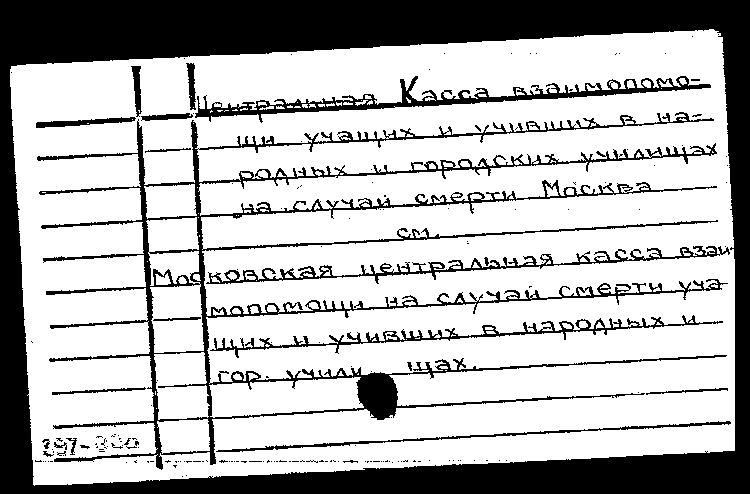 Центральная Касса взаимопомо-
щи учащих и учивших в на-
родных и городских училищах
на случай смерти Москва
см.
Московская центральная касса взаи-
мопомощи на случай смерти уча-
щих и учивших в народных и
гор. учили щах.